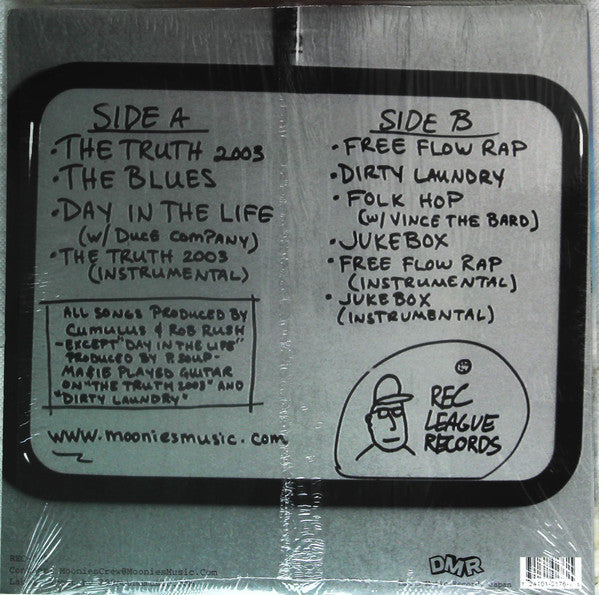 SIDE A
• THE TRUTH 2003
• THE BLUES
• DAY IN THE LIFE
(W/ DUCE COMPANY)
• THE TRUTH 2003
(INSTRUMENTAL)
ALL SONGS PRODUCED BY
CUMULUS & ROB RUSH
- EXCEPT "DAY IN THE LIFE"
PRODUCED BY P.SOUP -
MAGIE PLAYED GUITAR
ON "THE TRUTH 2003" AND
"DIRTY LAUNDRY"
www.mooniesmusic.com
SIDE B
• FREE FLOW RAP
• DIRTY LAUNDRY
• FOLK HOP
(W/ VINCE THE BARD)
• JUKEBOX
• FREE FLOW RAP
(INSTRUMENTAL)
• JUKEBOX
(INSTRUMENTAL)
REC
LEAGUE
RECORDS
REC
MooniesCrew@MooniesMusic.Com
DMR
Records, Japan